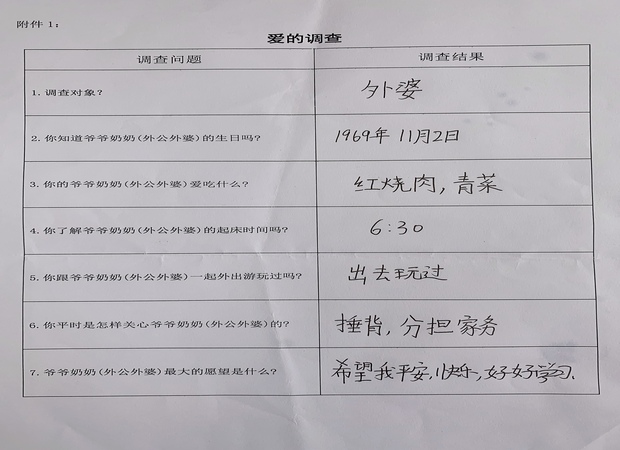 附件1:
爱的调查
调查问题 调查结果
1. 调查对象? 外婆
2. 你知道爷爷奶奶(外公外婆)的生日吗? 1969年 11月2日
3. 你的爷爷奶奶(外公外婆)爱吃什么? 红烧肉, 青菜
4. 你了解爷爷奶奶(外公外婆)的起床时间吗? 6:30
5. 你跟爷爷奶奶(外公外婆)一起外出游玩过吗? 出去玩过
6. 你平时是怎样关心爷爷奶奶(外公外婆)的? 捶背, 分担家务
7. 爷爷奶奶(外公外婆)最大的愿望是什么? 希望我平安,快乐,好好学习.